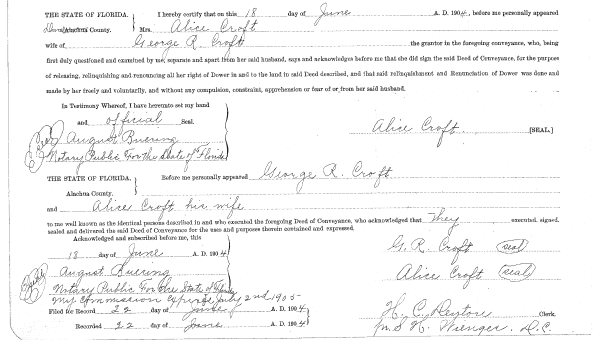 THE STATE OF FLORIDA. } I hereby certify that on this 18 day of June A. D. 1904, before me personally appeared
Alachua County. Mrs. Alice Croft
wife of George R. Croft the grantor in the foregoing conveyance, who, being
first duly questioned and examined by me, separate and apart from her said husband, says and acknowledges before me that she did sign the said Deed of Conveyance, for the purpose
of releasing, relinquishing and renouncing all her right of Dower in and to the land in said Deed described, and that said relinquishment and Renunciation of Dower was done and
made by her freely and voluntarily, and without any compulsion, constraint, apprehension or fear of or from her said husband.
In Testimony Whereof, I have hereunto set my hand
and official Seal.
August Buering
Notary Public For the State of Florida
Alice Croft [SEAL.]
THE STATE OF FLORIDA. } Before me personally appeared George R. Croft
Alachua County.
and Alice Croft his wife
to me well known as the identical persons described in and who executed the foregoing Deed of Conveyance, who acknowledged that They executed, signed.
sealed and delivered the said Deed of Conveyance for the uses and purposes therein contained and expressed.
Acknowledged and subscribed before me, this
18 day of June A. D. 1904
August Buering
Notary Public For the State of Florida
my commission expires July 2nd 1905
G. R. Croft (seal)
Alice Croft (seal)
Filed for Record 22 day of June A. D. 1904
Recorded 22 day of June A. D. 1904
H. C. Clerk.
D. C.